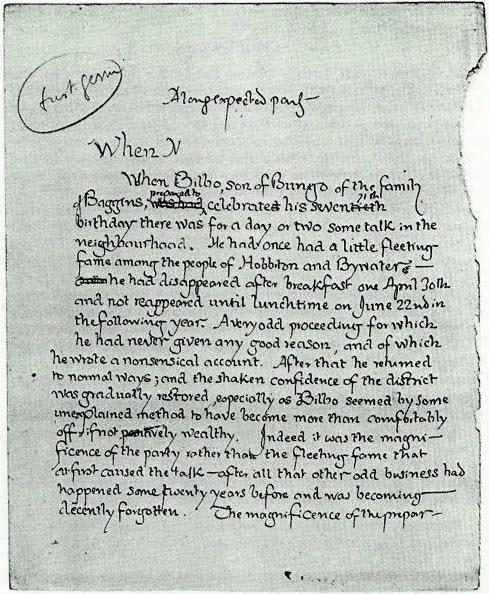 first germ
A long expected party
When
When Bilbo, son of Bungo of the family
prepared to
of Baggins, was had celebrate his seventieth
birthday there was for a day or two some talk in the
neighbourhood. He had once had a little fleeting
fame among the people of Hobbiton and Bywater —
he had disappeared after breakfast one April 30th
and not reappeared until lunchtime on June 22nd in
the following year. A very odd proceeding for which
he had never given any good reason, and of which
he wrote a nonsensical account. After that he returned
to normal ways; and the shaken confidence of the district
was gradually restored, especially as Bilbo seemed by some
unexplained method to have become more than comfortably
off, if not positively wealthy. Indeed it was the magni-
ficence of the party rather than the fleeting fame that
at first caused the talk — after all that other odd business had
happened some twenty years before and was becoming
decently forgotten. The magnificence of the prepar-